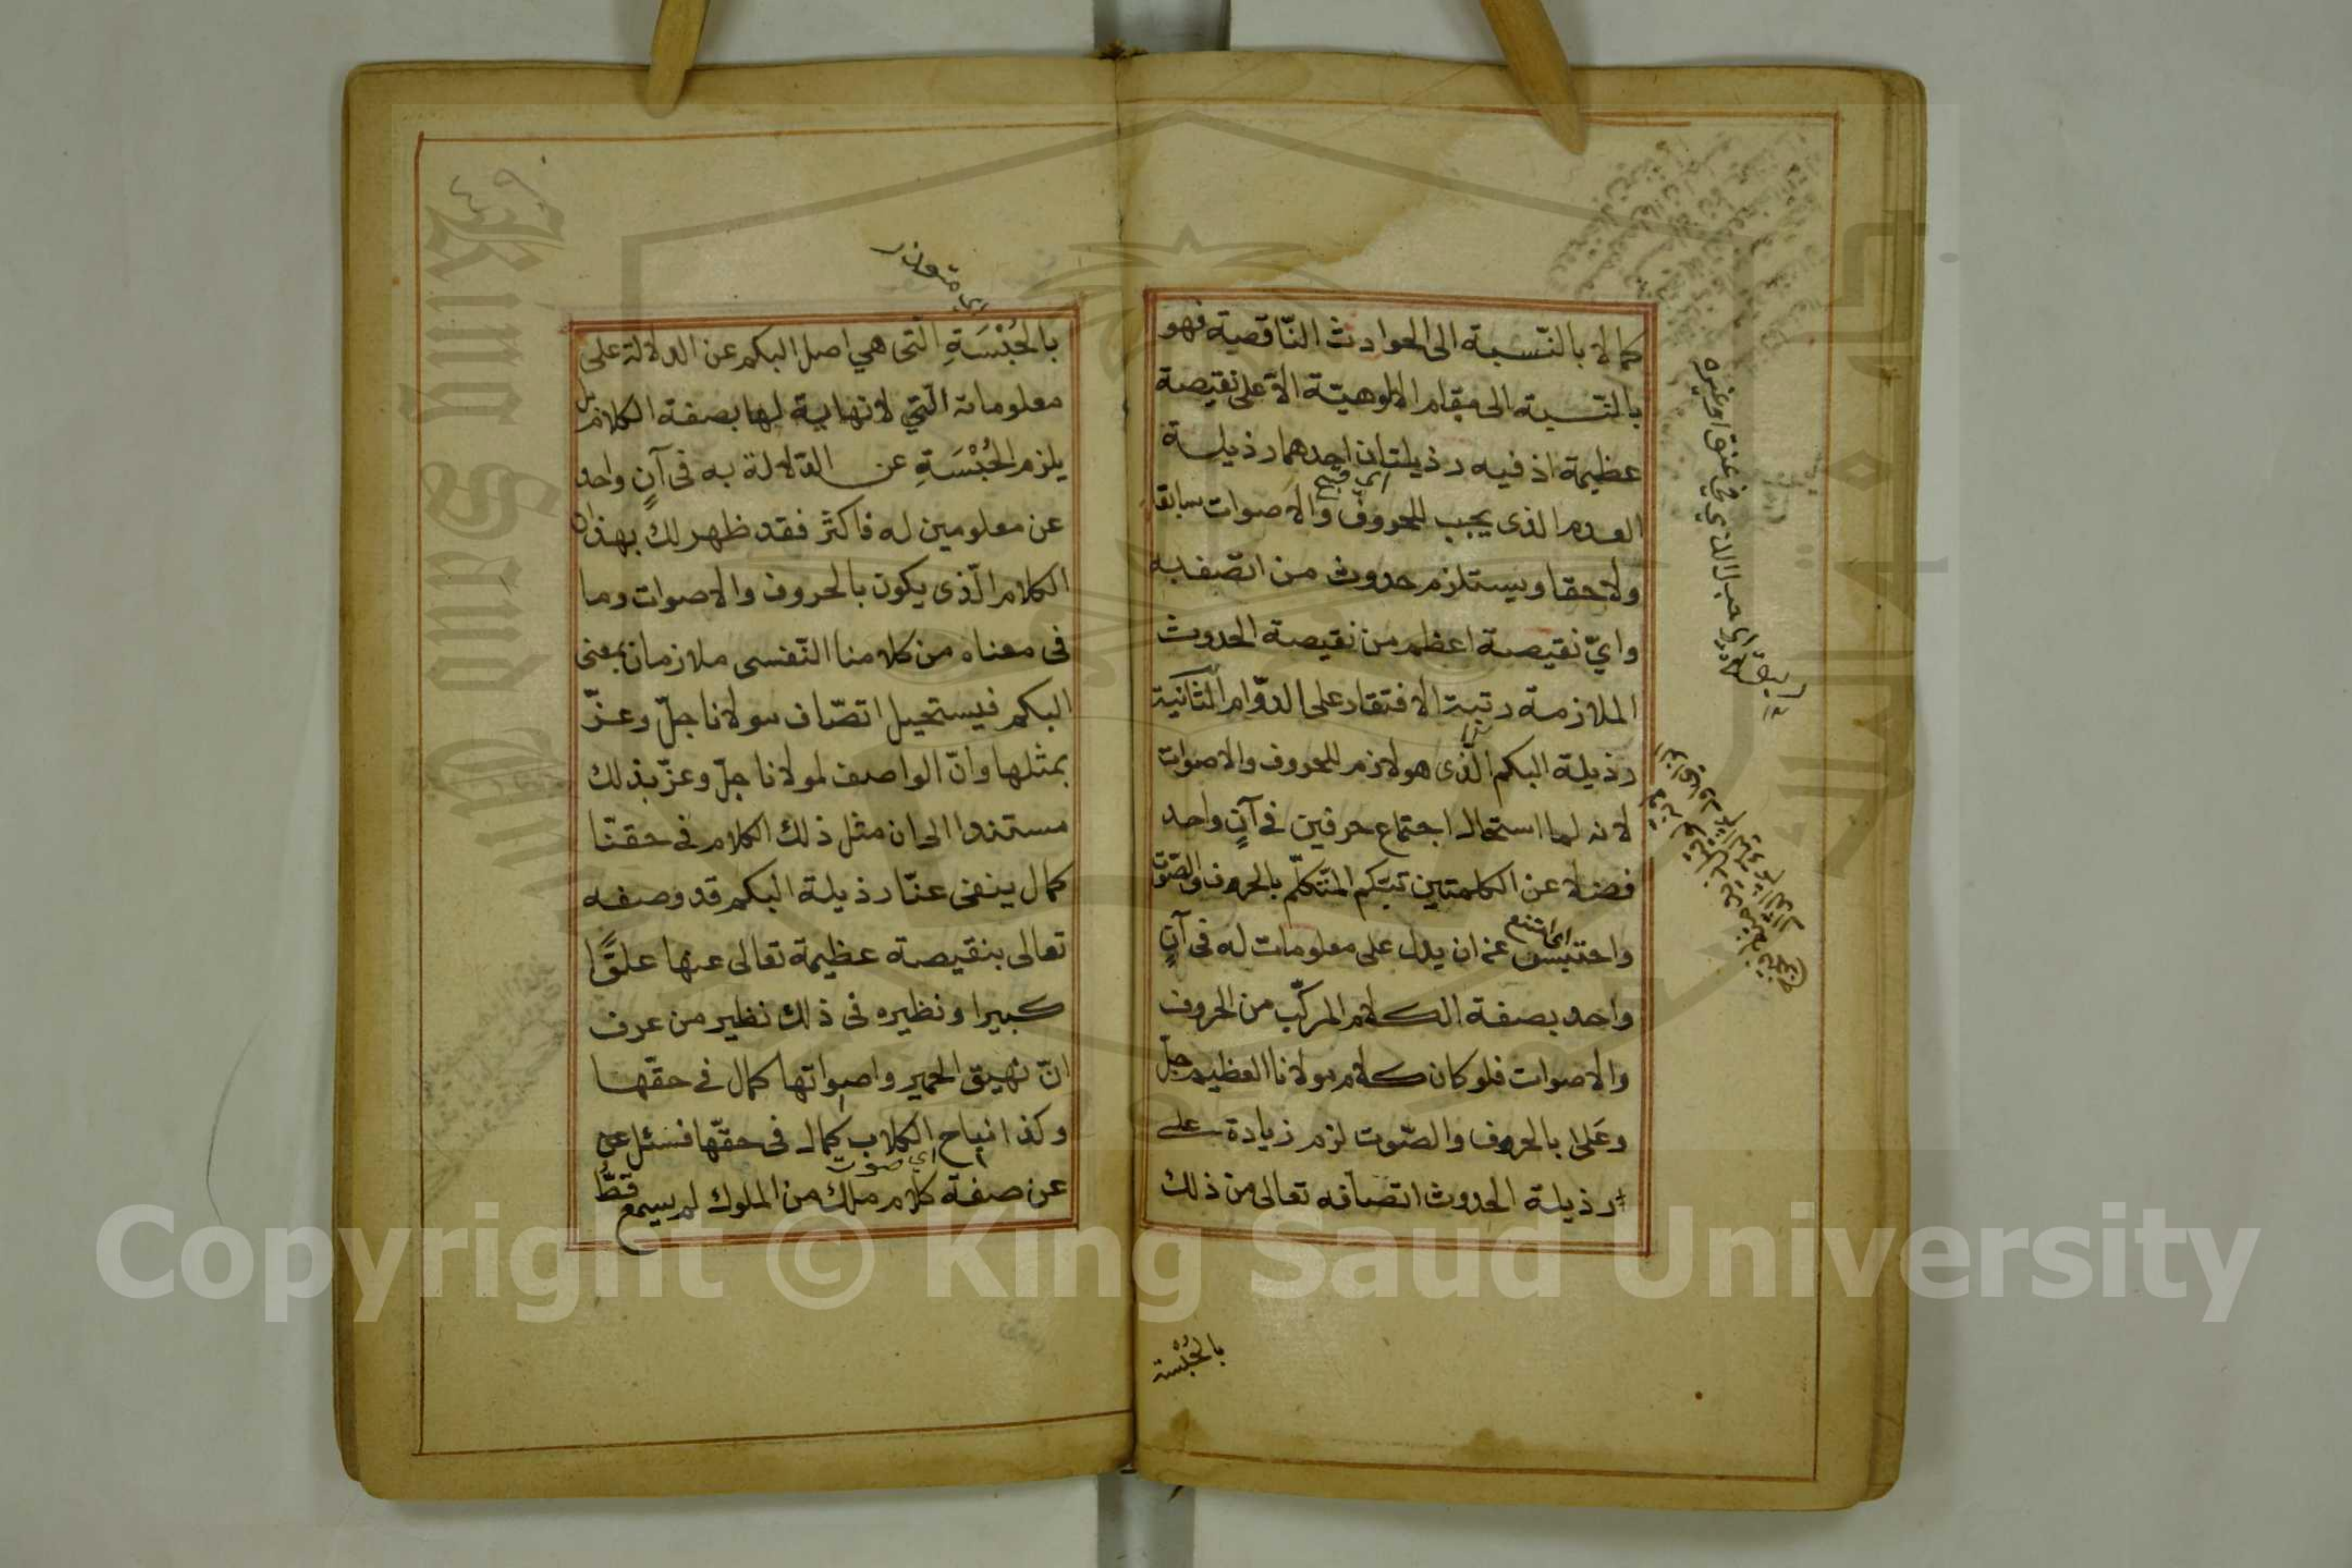 كمالا بالنّسبة الى الحوادث النّاقصية فهو
بالنّسبة الى مقام الالوهيّة الاعلى نقيصة
عظيمة اذ فيه رذيلتان احدهما رذيلة
العدم الذى يجب للحروف والاصوات سابقا
ولاحقا ويستلزم حدوث من اتّصف به
وايّ نقيصة اعظم من نقيصة الحدوث
الملازمة رتبة الافتقار على الدوّام الثّانية
رذيلة البكم الّذى هو لازم للحروف والاصوات
لانه لما استحال اجتماع حرفين فى آنٍ واحد
فضلا عن الكلمتين تبكم المتّكلّم بالحروف والصّوت
اى امتنع
واحتبس عن ان يدل على معلومات له فى آنٍ
واحد بصفة الكلام المركّب من الحروف
والاصوات فلو كان كلام مولانا العظيم جلّ
وعَلا بالحروف والصّوت لزم زيادة على
رذيلة الحدوث اتصافه تعالى من ذلك
بالحُبْسة
اى حبل الذي فى عنق او غيره
بالحُبْسَةِ الّتى هي اصل البكم عن الدلالة على
معلوماته الّتي لا نهاية لها بصفة الكلام بل
يلزم الحُبْسَةِ عن الدّلالة به فى آنٍ واحد
عن معلومين له فاكثر فقد ظهر لك بهذا ان
الكلام الّذى يكون بالحروف والاصوات وما
فى معناه من كلامنا النّفسى ملازمان بمعنى
البكم فيستحيل اتصّاف مولانا جلّ وعزّ
بمثلها وانّ الواصف لمولانا جلّ وعزّ بذلك
مستندا الى ان مثل ذلك الكلام فى حقنّا
كمال ينفى عنّا رذيلة البكم قد وصفه
تعالى بنقيصة عظيمة تعالى عنها علوًّا
كبيرا ونظيره فى ذلك نظير من عرف
انّ نهيق الحمير واصواتها كمال فى حقّها
وكذا نباح الكلاب كمال فى حقّها فسئل عن
اى صوت
عن صفة كلام ملك من الملوك لم يسمع قطّ
Copyright © King Saud University
King Saud University